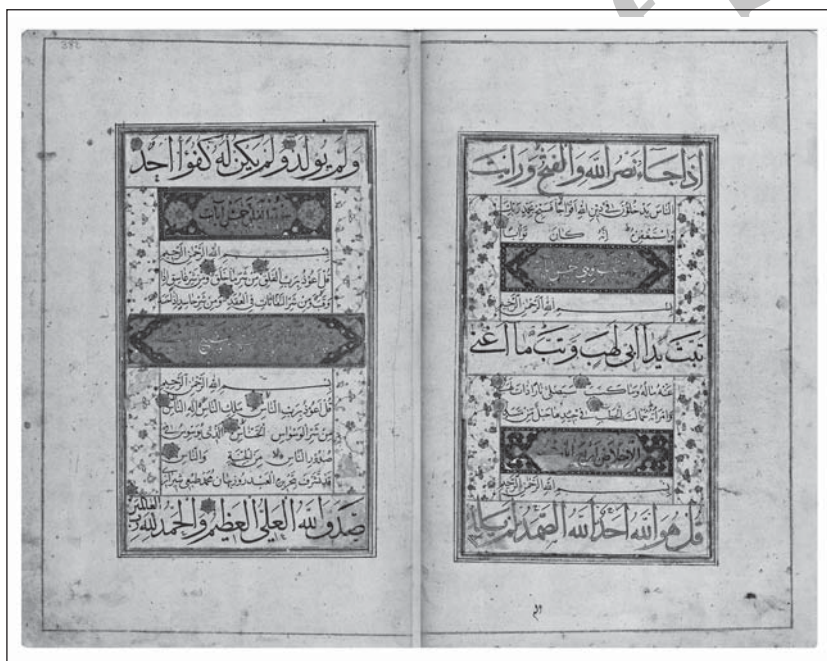 اِذَا جَاءَ نَصْرُ اللهِ وَالْفَتْحُ وَرَاَيْتَ
النَّاسَ يَدْخُلُونَ فِى دِينِ اللهِ اَفْوَاجًا فَسَبِّحْ بِحَمْدِ رَبِّكَ
وَاسْتَغْفِرْهُ اِنَّهُ كَانَ تَوَّابًا
وهى خمس
بِسْمِ اللهِ الرَّحْمٰنِ الرَّحِيمِ
تَبَّتْ يَدَا اَبِى لَهَبٍ وَتَبَّ مَا اَغْنٰى
عَنْهُ مَالُهُ وَمَا كَسَبَ سَيَصْلٰى نَارًا ذَاتَ لَهَبٍ
وَامْرَاَتُهُ حَمَّالَةَ الْحَطَبِ فِى جِيدِهَا حَبْلٌ مِنْ مَسَدٍ
الاخلاص اربع ايات
بِسْمِ اللهِ الرَّحْمٰنِ الرَّحِيمِ
قُلْ هُوَ اللهُ اَحَدٌ اَللهُ الصَّمَدُ لَمْ يَلِدْ
وَلَمْ يُولَدْ وَلَمْ يَكُنْ لَهُ كُفُوًا اَحَدٌ
خمس آيات
بِسْمِ اللهِ الرَّحْمٰنِ الرَّحِيمِ
قُلْ اَعُوذُ بِرَبِّ الْفَلَقِ مِنْ شَرِّ مَا خَلَقَ وَمِنْ شَرِّ غَاسِقٍ اِذَا
وَقَبَ وَمِنْ شَرِّ النَّفَّاثَاتِ فِى الْعُقَدِ وَمِنْ شَرِّ حَاسِدٍ اِذَا حَسَدَ
بِسْمِ اللهِ الرَّحْمٰنِ الرَّحِيمِ
قُلْ اَعُوذُ بِرَبِّ النَّاسِ مَلِكِ النَّاسِ اِلٰهِ النَّاسِ
مِنْ شَرِّ الْوَسْوَاسِ الْخَنَّاسِ الَّذِى يُوَسْوِسُ فِى
صُدُورِ النَّاسِ مِنَ الْجِنَّةِ وَالنَّاسِ
قد تشرف بتحريره العبد روزبهان محمد طبعى شيرازى
صَدَقَ اللهُ الْعَلِىُّ الْعَظِيمُ وَالْحَمْدُ لِلّٰهِ رب العالمين